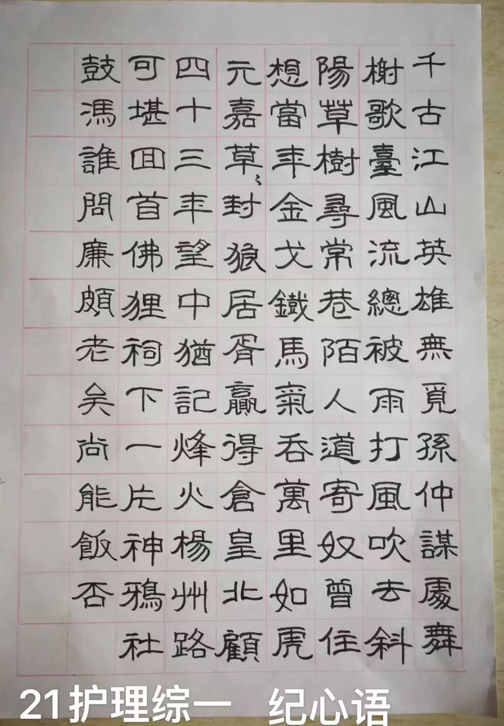 千古江山英雄無覓孫仲謀處舞
榭歌臺風流總被雨打風吹去斜
陽草樹尋常巷陌人道寄奴曾住
想當年金戈鐵馬氣吞萬里如虎
元嘉草〻封狼居胥贏得倉皇北顧
四十三年望中猶記烽火楊州路
可堪囬首佛狸祠下一片神鴉社
鼓馮誰問廉頗老矣尚能飯否
21护理综一 纪心语